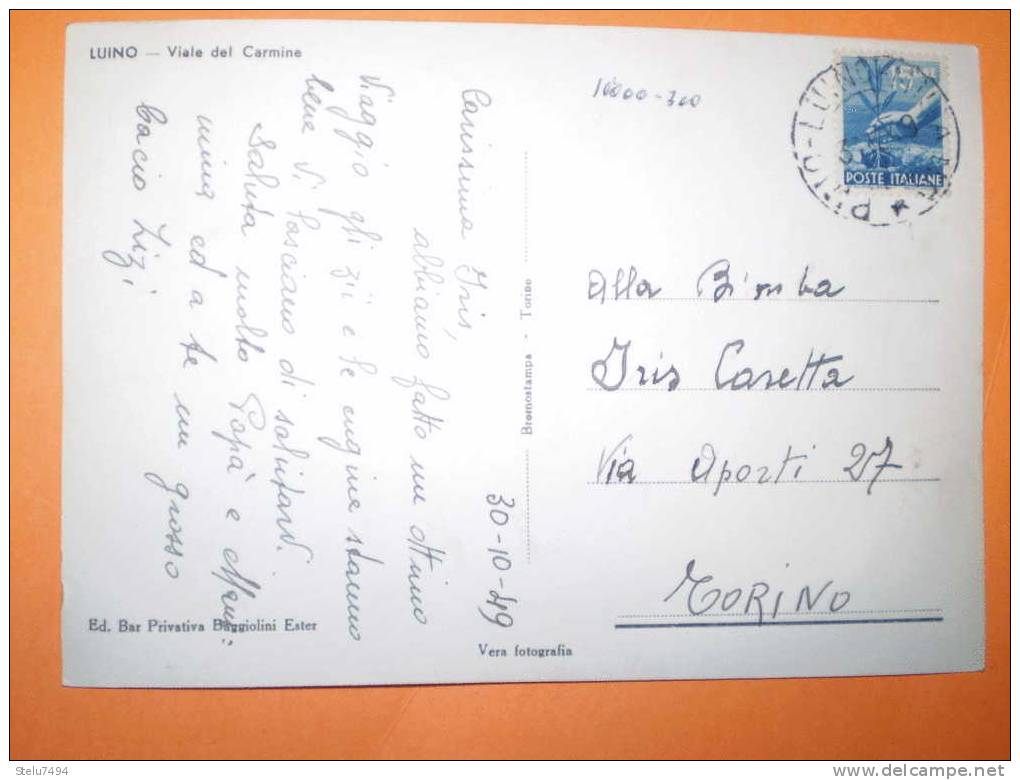 LUINO — Viale del Carmine
10000-300
POSTE ITALIANE
30-10-49
Carissima Iris,
abbiamo fatto un ottimo
viaggio gli zii e le cugine stanno
bene Vi lasciano di salutarvi.
Saluta molto Papà e Mam-
mina ed a te un grosso
bacio Zizi
Bromostampa - Torino
Alla Bimba
Iris Casetta
Via Aporti 27
TORINO
Ed. Bar Privativa Baggiolini Ester
Vera fotografia
Stelu7494
delcampe.net